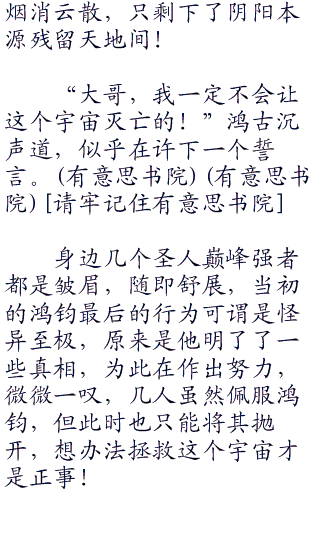 烟消云散，只剩下了阴阳本
源残留天地间！
“大哥，我一定不会让
这个宇宙灭亡的！”鸿古沉
声道，似乎在许下一个誓
言。(有意思书院) (有意思书
院) [请牢记住有意思书院]
身边几个圣人巅峰强者
都是皱眉，随即舒展，当初
的鸿钧最后的行为可谓是怪
异至极，原来是他明了了一
些真相，为此在作出努力，
微微一叹，几人虽然佩服鸿
钧，但此时也只能将其抛
开，想办法拯救这个宇宙才
是正事！